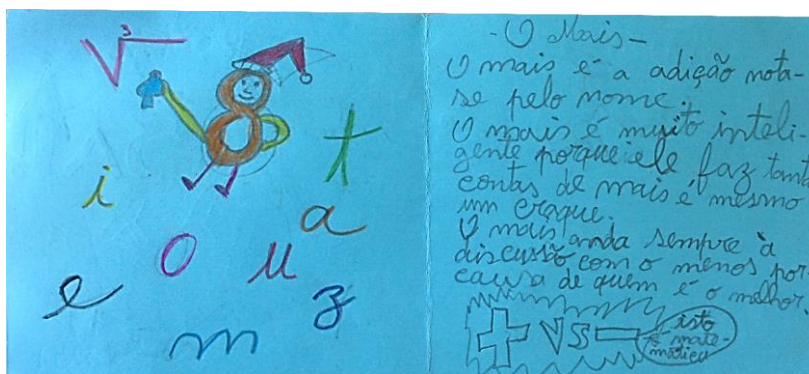 √3
8
i
t
a
o
u
e
z
m
- O Mais -
O mais é a adição nota-
se pelo nome.
O mais é muito inteli-
gente porque ele faz tanta
contas de mais é mesmo
um craque.
O mais anda sempre à
discussão com o menos por
causa de quem é o melhor.
+ VS -
isto
é mate-
mática